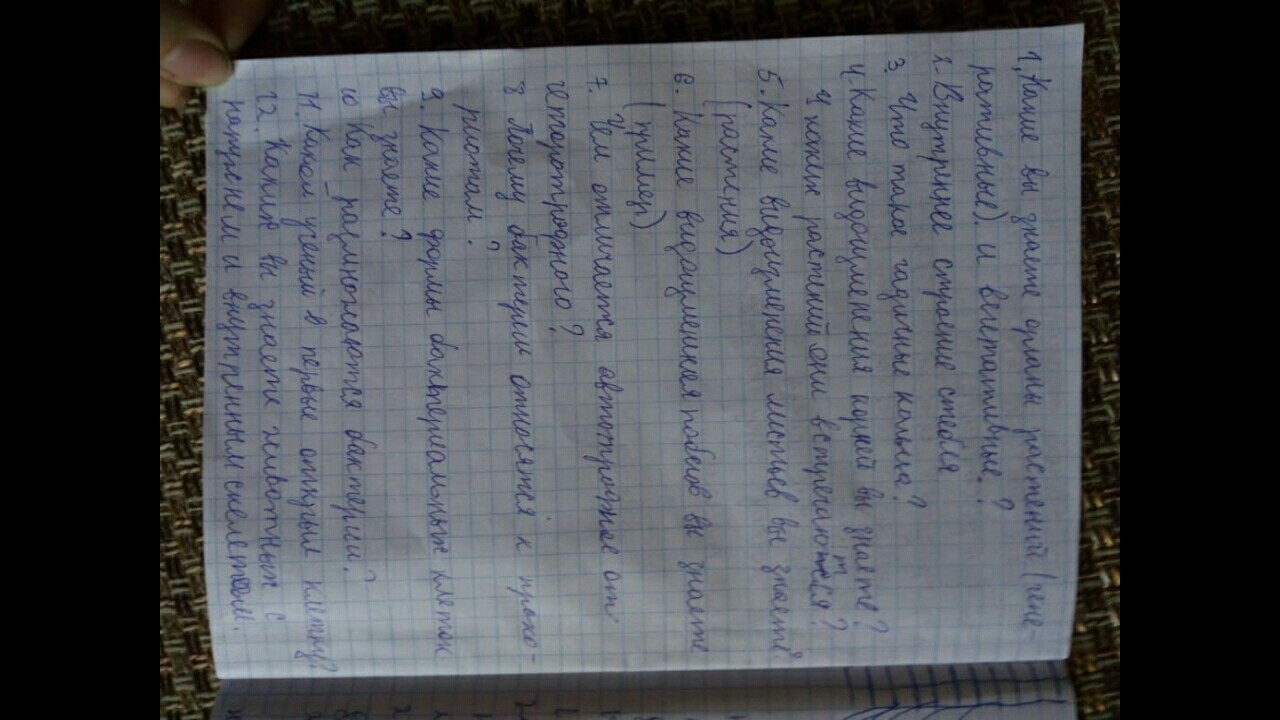 1, Какие вы знаете органы растений (гене-
ративные). и вегетативные.?
2. Внутреннее строение стебля
3. Что такое годичные кольца?
4. Какие видоизменения корней вы знаете?
У каких растений они встречаются?
5. Какие видоизменения листьев вы знаете?
(растения)
6. Какие видоизменения побегов вы знаете
(пример)
7. Чем отличается автотрофное от
гетеротрофного?
8 Почему бактерии относятся к прока-
риотам.?
9. Какие формы бактериальных клеток
вы знаете?
10 Как размножаются бактерии?
11. Какой ученый в первые открыл клетку?
12. Каких вы знаете животных с
наружнем и внутренним скелетом.